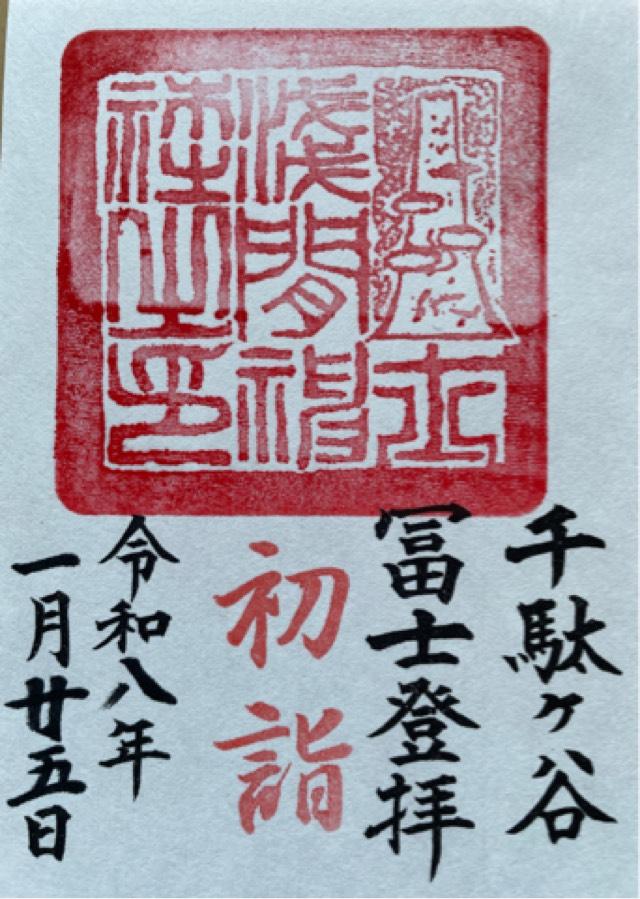 冨士
淺間神
社之印
千駄ヶ谷
冨士登拝
初詣
令和八年
一月廿五日